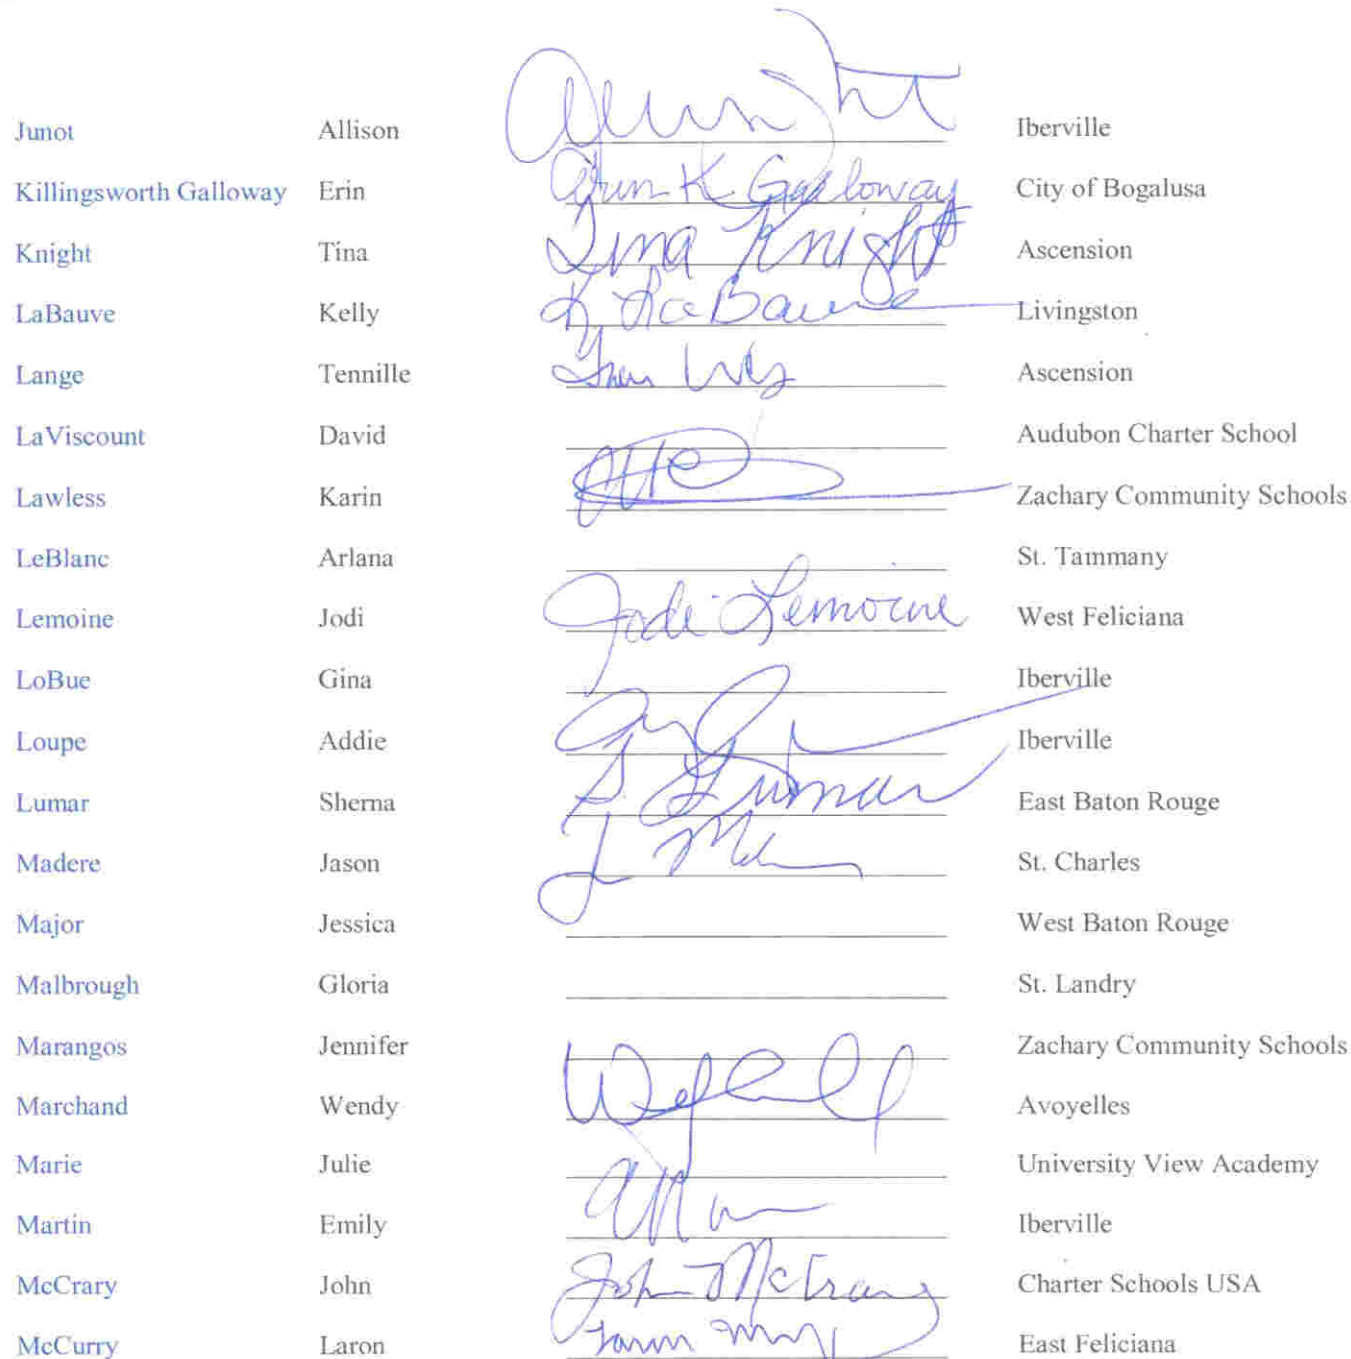 Junot Allison Iberville
Killingsworth Galloway Erin Erin K Galloway City of Bogalusa
Knight Tina Tina Knight Ascension
LaBauve Kelly K LaBauve Livingston
Lange Tennille Ascension
LaViscount David Audubon Charter School
Lawless Karin Zachary Community Schools
LeBlanc Arlana St. Tammany
Lemoine Jodi Jodi Lemoine West Feliciana
LoBue Gina Iberville
Loupe Addie Iberville
Lumar Sherna S. Lumar East Baton Rouge
Madere Jason St. Charles
Major Jessica West Baton Rouge
Malbrough Gloria St. Landry
Marangos Jennifer Zachary Community Schools
Marchand Wendy Avoyelles
Marie Julie University View Academy
Martin Emily Iberville
McCrary John John McCrary Charter Schools USA
McCurry Laron East Feliciana